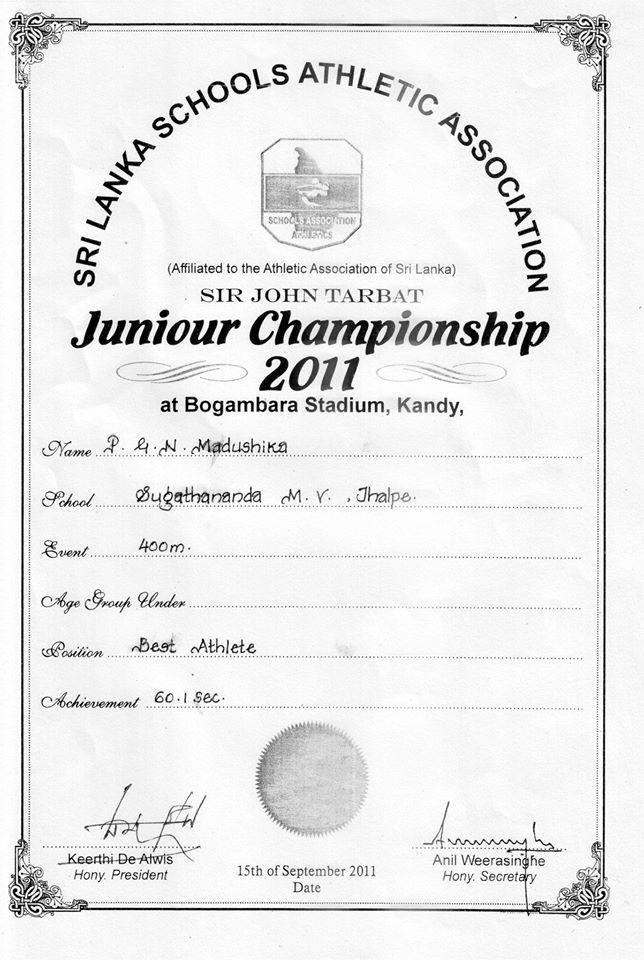 SRI LANKA SCHOOLS ATHLETIC ASSOCIATION
SCHOOLS ASSOCIATION
ATHLETICS
(Affiliated to the Athletic Association of Sri Lanka)
SIR JOHN TARBAT
Juniour Championship
2011
at Bogambara Stadium, Kandy,
Name P. G. N. Madushika
School Sugathananda M. V. , Ihalpe.
Event 400m.
Age Group Under
Position Best Athlete
Achievement 60.1 Sec.
Keerthi De Alwis
Hony. President
15th of September 2011
Date
Anil Weerasinghe
Hony. Secretary